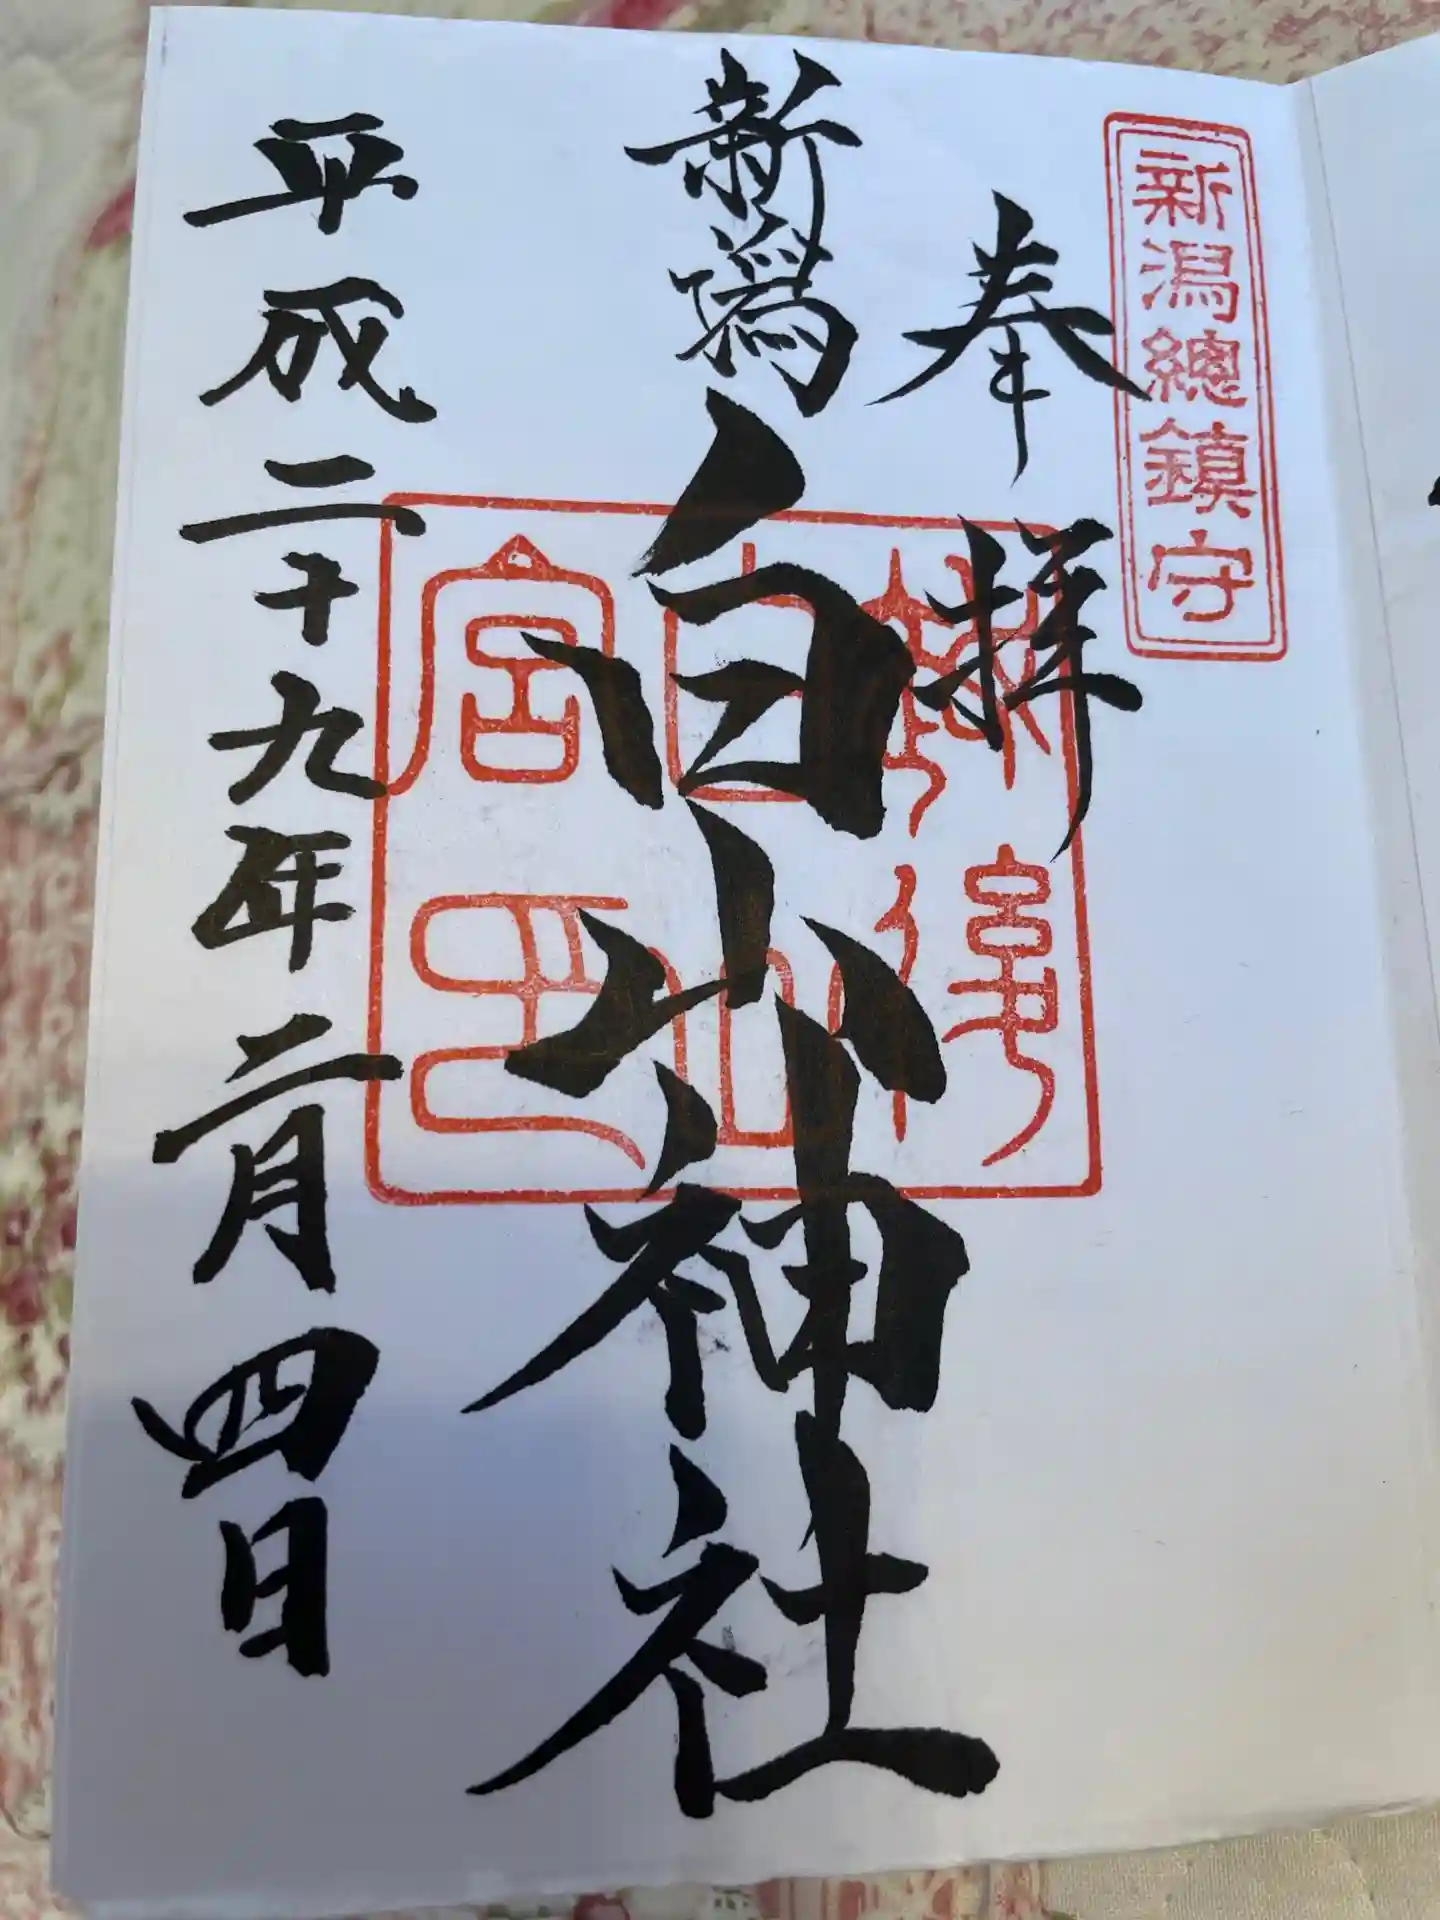 新潟總鎮守
奉拝
新潟白山神社
新潟
白山
宮印
平成二十九年二月四日